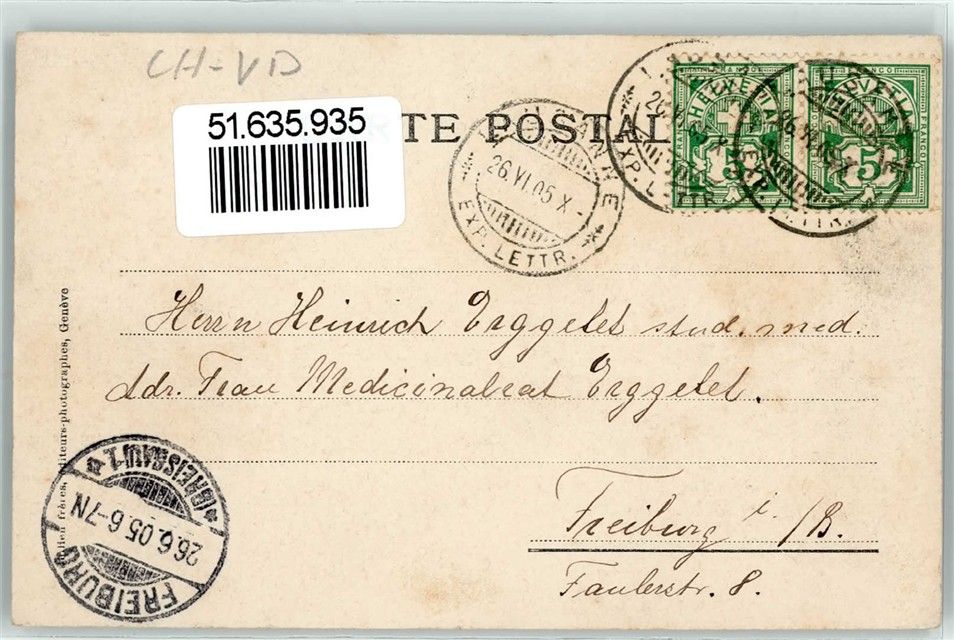 CH-VD
51.635.935
TE POSTAL
26.VI.05 X
EXP. LETTR.
FRANCO
5
5
Herrn Heinrich Erggelet stud. med.
Adr. Frau Medicinalrat Erggelet.
Freiburg i./B.
Faulerstr. 8.
FREIBURG
26.6.05.6-7N
(BREISGAU) 1
frères, éditeurs-photographes, Genève